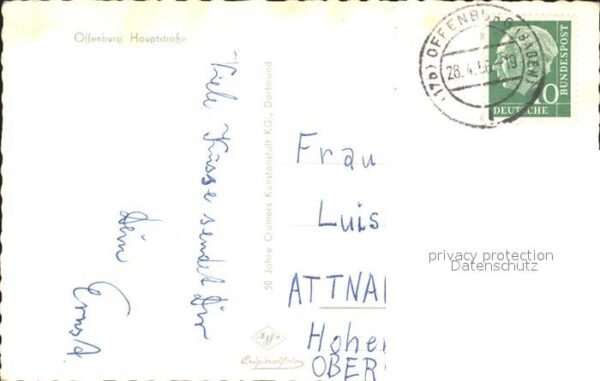 Offenburg. Hauptstraße
Viele Küsse sendet Dir
Dein
Ernst.
50 Jahre Cramers Kunstanstalt KG., Dortmund
Agfa
Originalfoto
(17b) OFFENBURG (BADEN)
28.4.56.-19
10
DEUTSCHE
BUNDESPOST
Frau
Luis
ATTNA
Hohe
OBER
privacy protection
Datenschutz